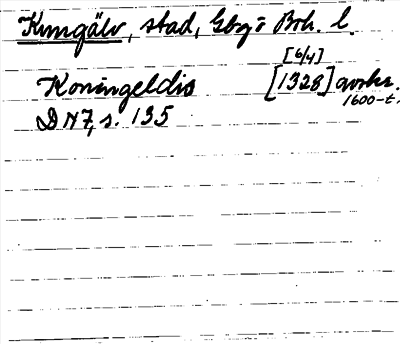 Kungälv, stad, Gbg o Boh. l.
[6/4]
Koningeldis [1328] avskr.
1600-t.
DN7, s. 135